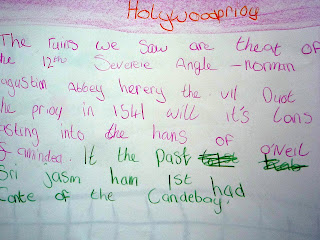 Holywoodprioy
The ruins we saw are theat of
the 12th Severeie Angle - norman
agastian Abbey herery the vil Duot
he prioy in 1541 will it's Lans
asting into the hans of O'Neil
& aminded. It the past
Sri Jasm ham 1st had
Carte of the Candeboy.